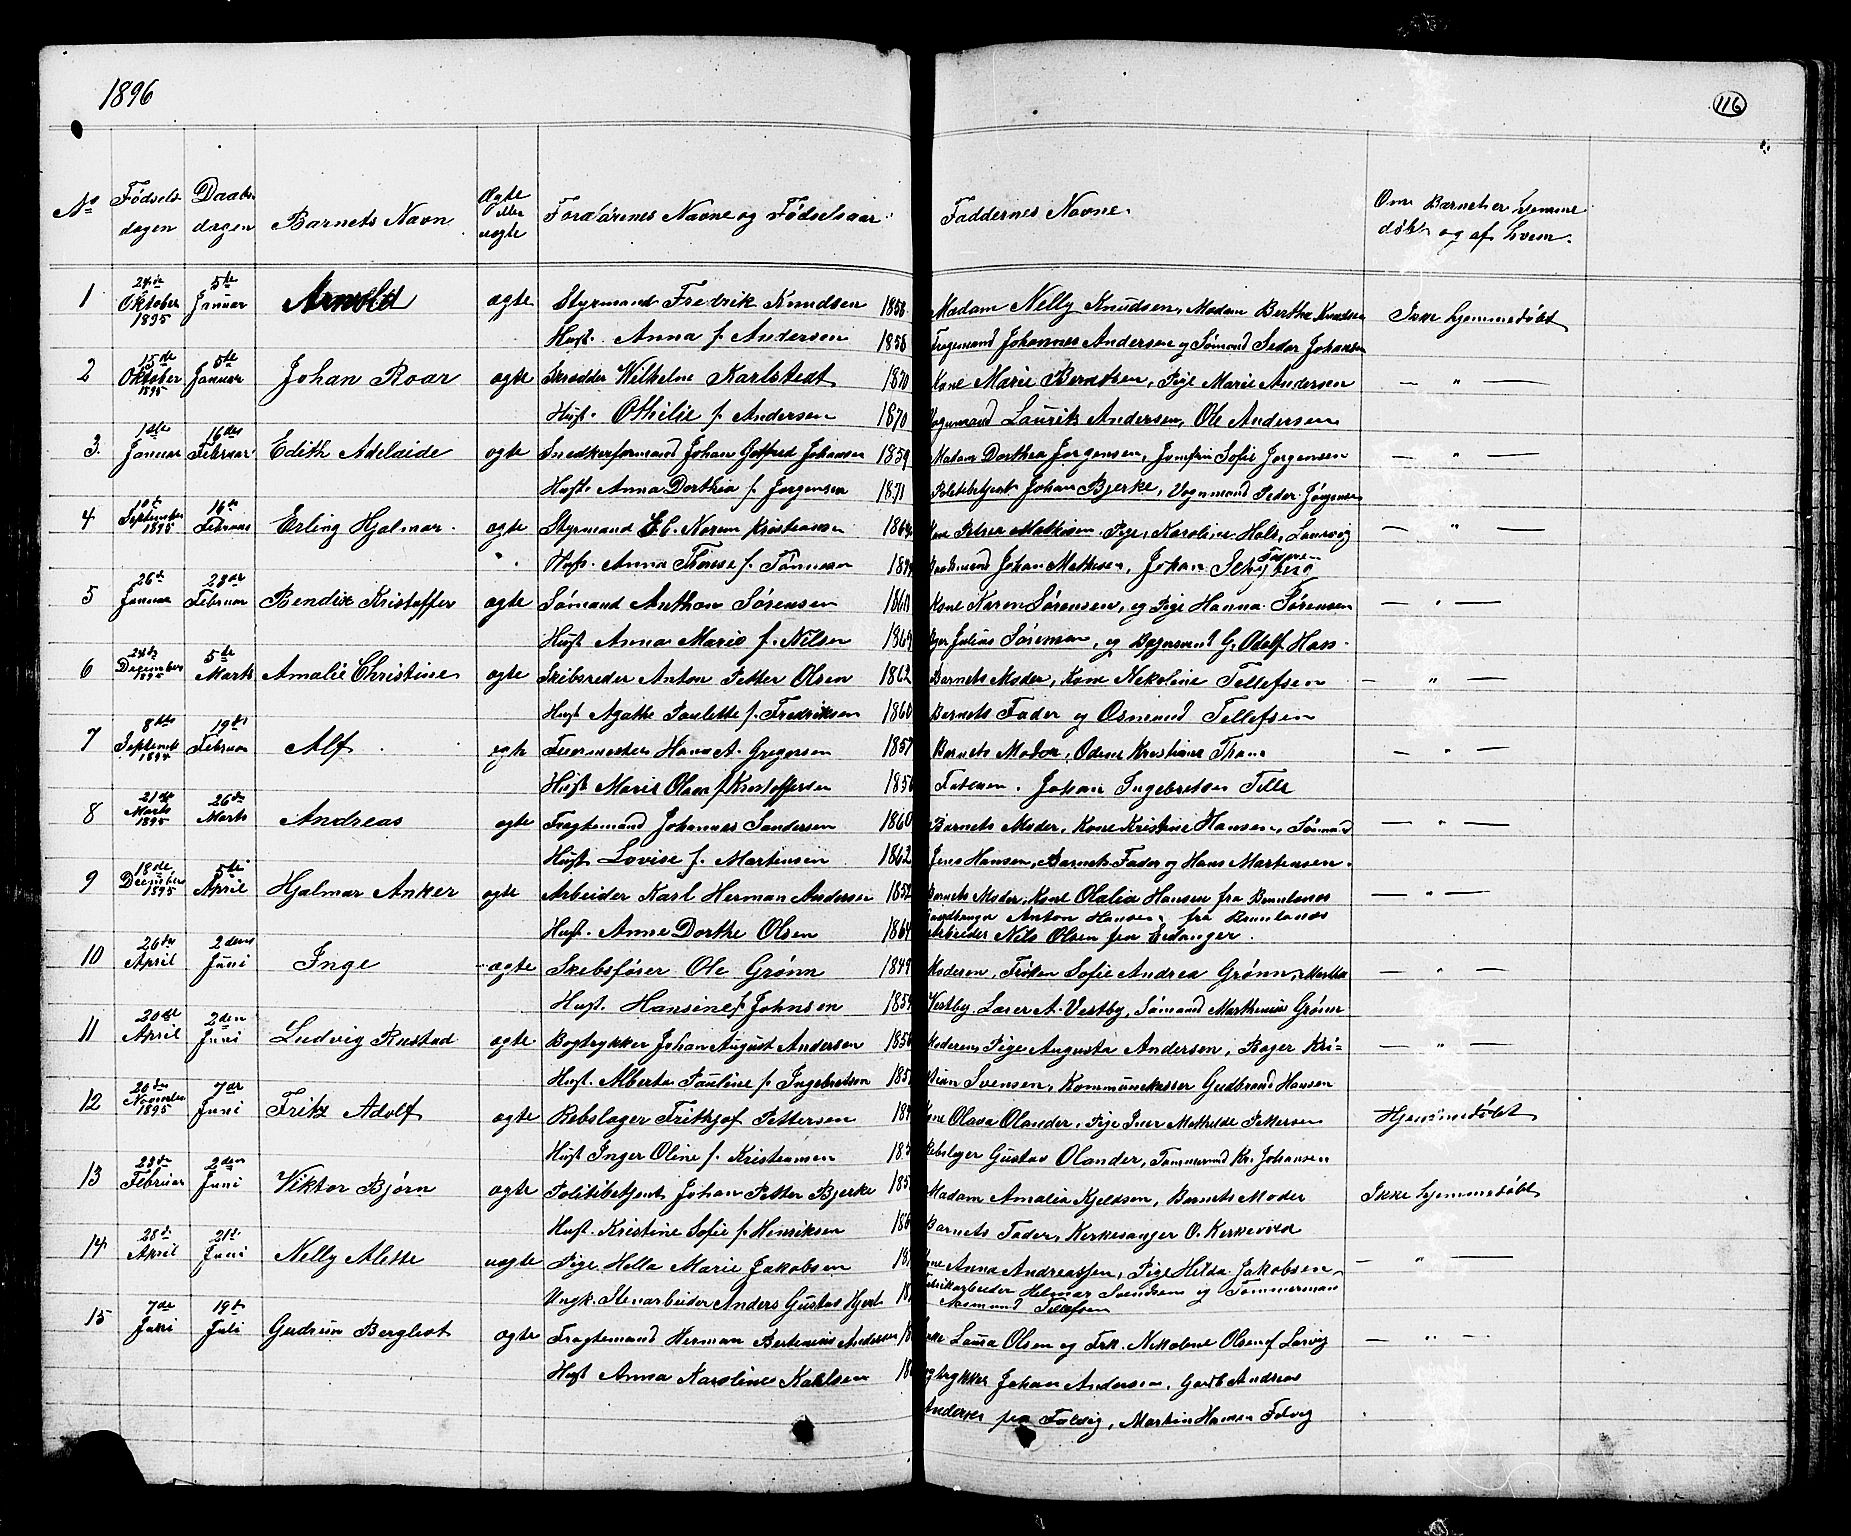 1896
116
No Fødsels dagen Daabs dagen Barnets Navn Ægte eller uægte Forældrenes Navne og Fødselsaar. Faddernes Navne. Om Barnet er hjemme døbt og af hvem.
1 24de Oktober 1895 5te Januar Arnold ægte Styrmand Fredrik Knudsen 1858 Madam Nelly Knudsen, Madam Berthe Knudsen Ikke hjemmedøbt
Hust. Anna f. Andersen 1858 Johannes Andersen og Sømand Peder Johansen
2 15de Oktober 1895 5te Januar Johan Roar ægte Skrædder Wilhelm Karlstedt 1870 Kone Marie Berntsen, Pige Marie Andersen — " —
Hust. Othilie f. Andersen 1870 Laurits Andersen, Ole Andersen
3. 1ste Januar 16des Februar Edith Adelaide ægte Snedkerformand Johan Gotfred Johansen 1859 Madam Dorthea Jørgensen, Jomfru Sofie Jørgensen — " —
Hust. Anna Dorthia f. Jørgensen 1871 Politibetjent Johan Bjerke, Vognmand Peder Jørgensen
4 10de September 1895 16de Februar Erling Hjalmar. ægte Styrmand E. C. Norum Kristiansen Kone Petrea Mathisen Pige, Karoline Hals, Laurvig — " —
" Hust. Anna Therese f. Tønnesen Johan Mathisen, Johan
5 26de Januar 23de Februar Bendix Kristoffer ægte Sømand Anthon Sørensen Kone Karen Sørensen, og Pige Hanna Sørensen — " —
Hust. Anna Marie f. Nilsen Julius Sørensen, og G. Adolf Hass.
6 24de December 1895 5te Marts Amalie Christine ægte Skibsreder Anton Petter Olsen 1862 Barnets Moder, Kone Nekoline Tellefsen — " —
Hust. Agathe Paulette f. Fredriksen 1860 Barnets Fader og Osmund Tellefsen
7 8de Septemb. 1894 19de Februar Alf ægte Hans A. Gregersen 1857 Barnets Moder, Odene Kristiane Thane — " —
Hust. Marie Olava f. Kristoffersen Faderen. Johan Ingebretsen Telle
8 21de Marts 1895 26de Marts Andreas ægte Fragtemand Johannes Sandersen 1860 Barnets Moder, Kone Kristine Hansen, Sømand — " —
Hust. Lovise f. Martensen 1862 Jens Hansen, Barnets Fader og Hans Martensen.
9 18de December 1895 5te April Hjalmar Anker ægte Arbeider Karl Herman Andersen 1852 Barnets Moder, Kone Olalia Hansen fra Brunlanes — " —
Anton Hansen, fra Brunlanes
Hust. Anne Dorthe Olsen 1864 Arbeider Nils Olsen fra Eidanger.
10 26de April 2den Juni Inge ægte Skibsfører Ole Grønn 1849 Moderen, Frøken Sofie Andrea Grønn, Martha — " —
Hust. Hansine f. Johnsen Vestby, Laser A. Vestby, Sømand Mathenius Grønn
11 20de April 2den Juni Ludvig Rustad ægte Bogtrykker Johan August Andersen Moderen, Pige Augusta Andersen, Bager Kri= — " —
Hust. Alberta Pauline f. Ingebretsen stian Svensen, Kommunekasser Gudbrand Hansen
12 20de November 1895 7de Juni Fritz Adolf ægte Rebslager Frithjof Pettersen Kone Olava Olander, Pige Iner Mathilde Pettersen Hjemmedøbt
Hust. Inger Oline f. Kristiansen Rebslager Gustav Olander, Tømmermd Kr. Johansen
13 23de Februar 2den Juni Viktor Bjørn ægte Politibetjent Johan Petter Bjerke Madam Amalia Kjeldsen, Barnets Moder Ikke hjemmedøbt
Hust. Kristine Sofie f. Henriksen Barnets Fader, Kirkesanger O. Kirkevold
14 28de April 21de Juni Nelly Alette uægte Pige Hella Marie Jakobsen Kone Anna Andreassen, Pige Hilda Jakobsen, — " —
Fabrikarbeider Helmar Svendsen og Tømmerman
Ungk. Stenarbeider Anders Gustav Hjert Aasmund Tellefsen
15 7de Juni 19de Juli Gudrun Bergliot ægte Fragtemand Herman Bertenius Andersen Laura Olsen og Frk. Nikoline Olsen af Larvig — " —
Hust Anna Karoline Karlsen Bogtrykker Johan Andersen, Gaardb Andreas
Andersen fra Tjølling, Martin Hansen